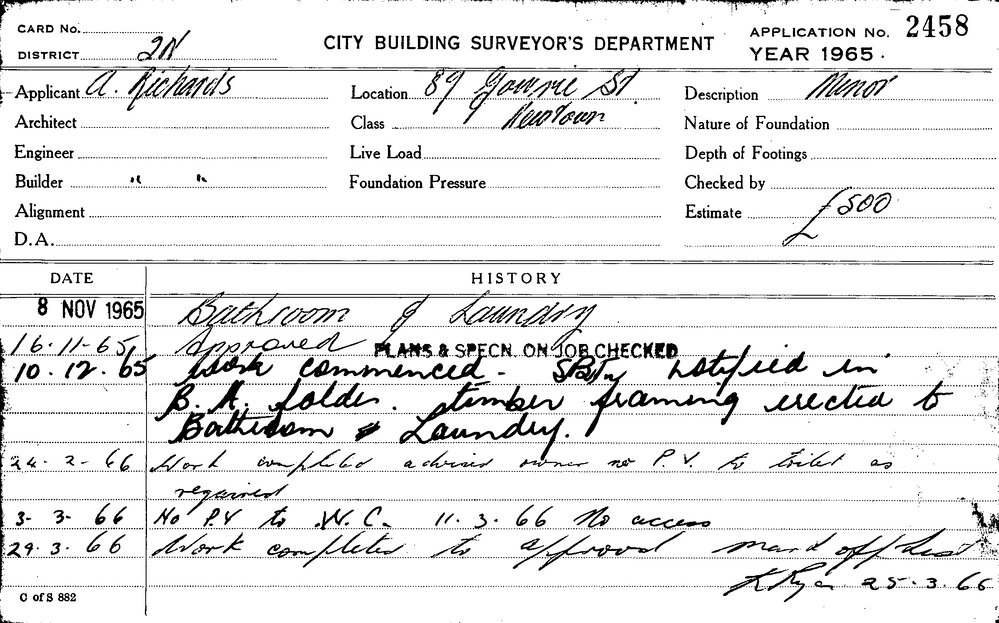 CARD No.
DISTRICT 2N
CITY BUILDING SURVEYOR'S DEPARTMENT
APPLICATION No. 2458
YEAR 1965.
Applicant A. Richards
Location 89 Gowrie St
Description Minor
Architect
Class Newtown
Nature of Foundation
Engineer
Live Load
Depth of Footings
Builder " "
Foundation Pressure
Checked by
Alignment
Estimate £500
D.A.
DATE HISTORY
8 NOV 1965 Bathroom & Laundry
16.11.65 Approved PLANS & SPECN. ON JOB CHECKED
10.12.65 Work commenced - notified in
B.A. folder. timber framing erected to
Bathroom & Laundry.
24-2-66 Work completed advised owner no P.V. to toilet as
required
3-3-66 No P.V to W.C. 11.3.66 No access
29.3.66 Work completed to approval mard off list
K Ryan 25.3.66
C of S 882